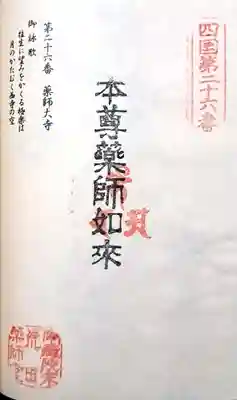 四国第二十六番
本尊藥師如來
第二十六番　薬師大寺
御詠歌
往生に望みをかくる極楽は
月のかたむく西寺の空